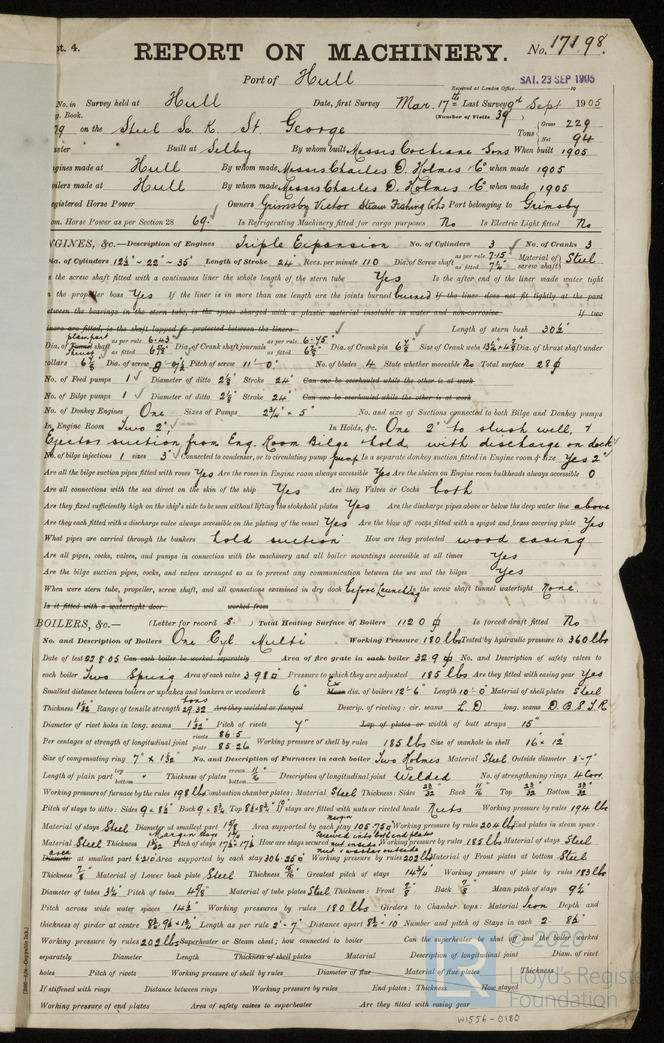 pt. 4.
REPORT ON MACHINERY.
No. 17198.
Port of Hull
Received at London Office
SAT. 23 SEP 1905
No. in Survey held at Hull Date, first Survey Mar. 17th Last Survey 9th Sept 1905
g. Book. (Number of Visits 39)
on the Steel Sc. K. St. George Tons Gross 229 Net 94
Built at Selby By whom built Messrs Cochrane Sons When built 1905
gines made at Hull By whom made Messrs Charles D. Holmes & Co when made 1905
oilers made at Hull By whom made Messrs Charles D. Holmes & Co when made 1905
egistered Horse Power Owners Grimsby Victor Steam Fishing Co Ltd Port belonging to Grimsby
om. Horse Power as per Section 28 69. Is Refrigerating Machinery fitted for cargo purposes No Is Electric Light fitted No
NGINES, &c.—Description of Engines Triple Expansion No. of Cylinders 3 No. of Cranks 3
Dia. of Cylinders 12½" - 22" - 35" Length of Stroke 24" Revs. per minute 110 Dia. of Screw shaft as per rule 7.15" as fitted 7¼" Material of screw shaft Steel
s the screw shaft fitted with a continuous liner the whole length of the stern tube Yes Is the after end of the liner made water tight
n the propeller boss Yes If the liner is in more than one length are the joints burned burned If the liner does not fit tightly at the part
etween the bearings in the stern tube, is the space charged with a plastic material insoluble in water and non-corrosive If two
liners are fitted, is the shaft lapped or protected between the liners Length of stern bush 30½"
Dia. of Tunnel shaft as per rule 6.43" as fitted Dia. of Crank shaft journals as per rule 6.75" as fitted Dia. of Crank pin Size of Crank webs Dia. of thrust shaft under
collars Dia. of screw Pitch of screw 11'-0" No. of blades 4 State whether moveable No Total surface 28
No. of Feed pumps 1 Diameter of ditto Stroke 24" Can one be overhauled while the other is at work
No. of Bilge pumps 1 Diameter of ditto Stroke 24" Can one be overhauled while the other is at work
No. of Donkey Engines One Sizes of Pumps 2¾" × 5" No. and size of Suctions connected to both Bilge and Donkey pumps
In Engine Room Two 2" In Holds, &c. One 2" to slush well, &
Ejector suction from Eng. Room Bilge & hold with discharge on deck
No. of bilge injections 1 sizes 3" Connected to condenser, or to circulating pump pump Is a separate donkey suction fitted in Engine room & size Yes 2"
Are all the bilge suction pipes fitted with roses Yes Are the roses in Engine room always accessible Yes Are the sluices on Engine room bulkheads always accessible 0
Are all connections with the sea direct on the skin of the ship Yes Are they Valves or Cocks both
Are they fixed sufficiently high on the ship's side to be seen without lifting the stokehold plates Yes Are the discharge pipes above or below the deep water line above
Are they each fitted with a discharge valve always accessible on the plating of the vessel Yes Are the blow off cocks fitted with a spigot and brass covering plate Yes
What pipes are carried through the bunkers hold suction How are they protected wood casing
Are all pipes, cocks, valves, and pumps in connection with the machinery and all boiler mountings accessible at all times Yes
Are the bilge suction pipes, cocks, and valves arranged so as to prevent any communication between the sea and the bilges Yes
When were stern tube, propeller, screw shaft, and all connections examined in dry dock before Launching the screw shaft tunnel watertight None.
Is it fitted with a watertight door worked from
BOILERS, &c.— (Letter for record S.) Total Heating Surface of Boilers 1120 Is forced draft fitted No
No. and Description of Boilers One Cyl. Multi Working Pressure 180 lbs Tested by hydraulic pressure to 360 lbs
Date of test 22.8.05 Can each boiler be worked separately Area of fire grate in each boiler 32.9 No. and Description of safety valves to
each boiler Two Spring Area of each valve 3.98 Pressure to which they are adjusted 185 lbs Are they fitted with easing gear Yes
Smallest distance between boilers or uptakes and bunkers or woodwork 6" Mean dia. of boilers 12'-6" Length 10'-0" Material of shell plates Steel
Thickness Range of tensile strength 29.32 tons Are they welded or flanged Descrip. of riveting: cir. seams L.D. long. seams D.B.S.T.R.
Diameter of rivet holes in long. seams 1 3/32 Pitch of rivets 7" Lap of plates or width of butt straps 15"
Per centages of strength of longitudinal joint rivets 86.5 plate 85.26 Working pressure of shell by rules 185 lbs Size of manhole in shell 16" × 12"
Size of compensating ring 7" × 1 3/32" No. and Description of Furnaces in each boiler Two Holmes Material Steel Outside diameter 3'-7"
Length of plain part top bottom Thickness of plates crown bottom 11/16" Description of longitudinal joint Welded No. of strengthening rings 4 Corr.
Working pressure of furnace by the rules 198 lbs Combustion chamber plates: Material Steel Thickness: Sides Back Top Bottom
Pitch of stays to ditto: Sides 9 × 8½" Back 9 × 8¾" Top If stays are fitted with nuts or riveted heads Nuts Working pressure by rules 194 lbs
Material of stays Steel Diameter at smallest part Area supported by each stay 105.75 Working pressure by rules 204 lbs End plates in steam space:
Material Steel Thickness Pitch of stays How are stays secured nut inside Working pressure by rules 185 lbs Material of stays Steel
Diameter at smallest part 6.210 Area supported by each stay 306.25 Working pressure by rules 202 lbs Material of Front plates at bottom Steel
Thickness 7/8" Material of Lower back plate Steel Thickness Greatest pitch of stays Working pressure of plate by rules 183 lbs
Diameter of tubes 3¼" Pitch of tubes Material of tube plates Steel Thickness: Front 7/8" Back Mean pitch of stays 9¼"
Pitch across wide water spaces 14½" Working pressures by rules 180 lbs Girders to Chamber tops: Material Iron Depth and
thickness of girder at centre Length as per rule 2'-7" Distance apart 8¾" - 10" Number and pitch of Stays in each 2 - 8½"
Working pressure by rules 202 lbs Superheater or Steam chest; how connected to boiler Can the superheater be shut off and the boiler worked
separately Diameter Length Thickness of shell plates Material Description of longitudinal joint Diam. of rivet
holes Pitch of rivets Working pressure of shell by rules Diameter of flue Material of flue plates Thickness
If stiffened with rings Distance between rings Working pressure by rules End plates: Thickness How stayed
Working pressure of end plates Area of safety valves to superheater Are they fitted with easing gear
© 2020
Lloyd's Register
Foundation
W1556-0180